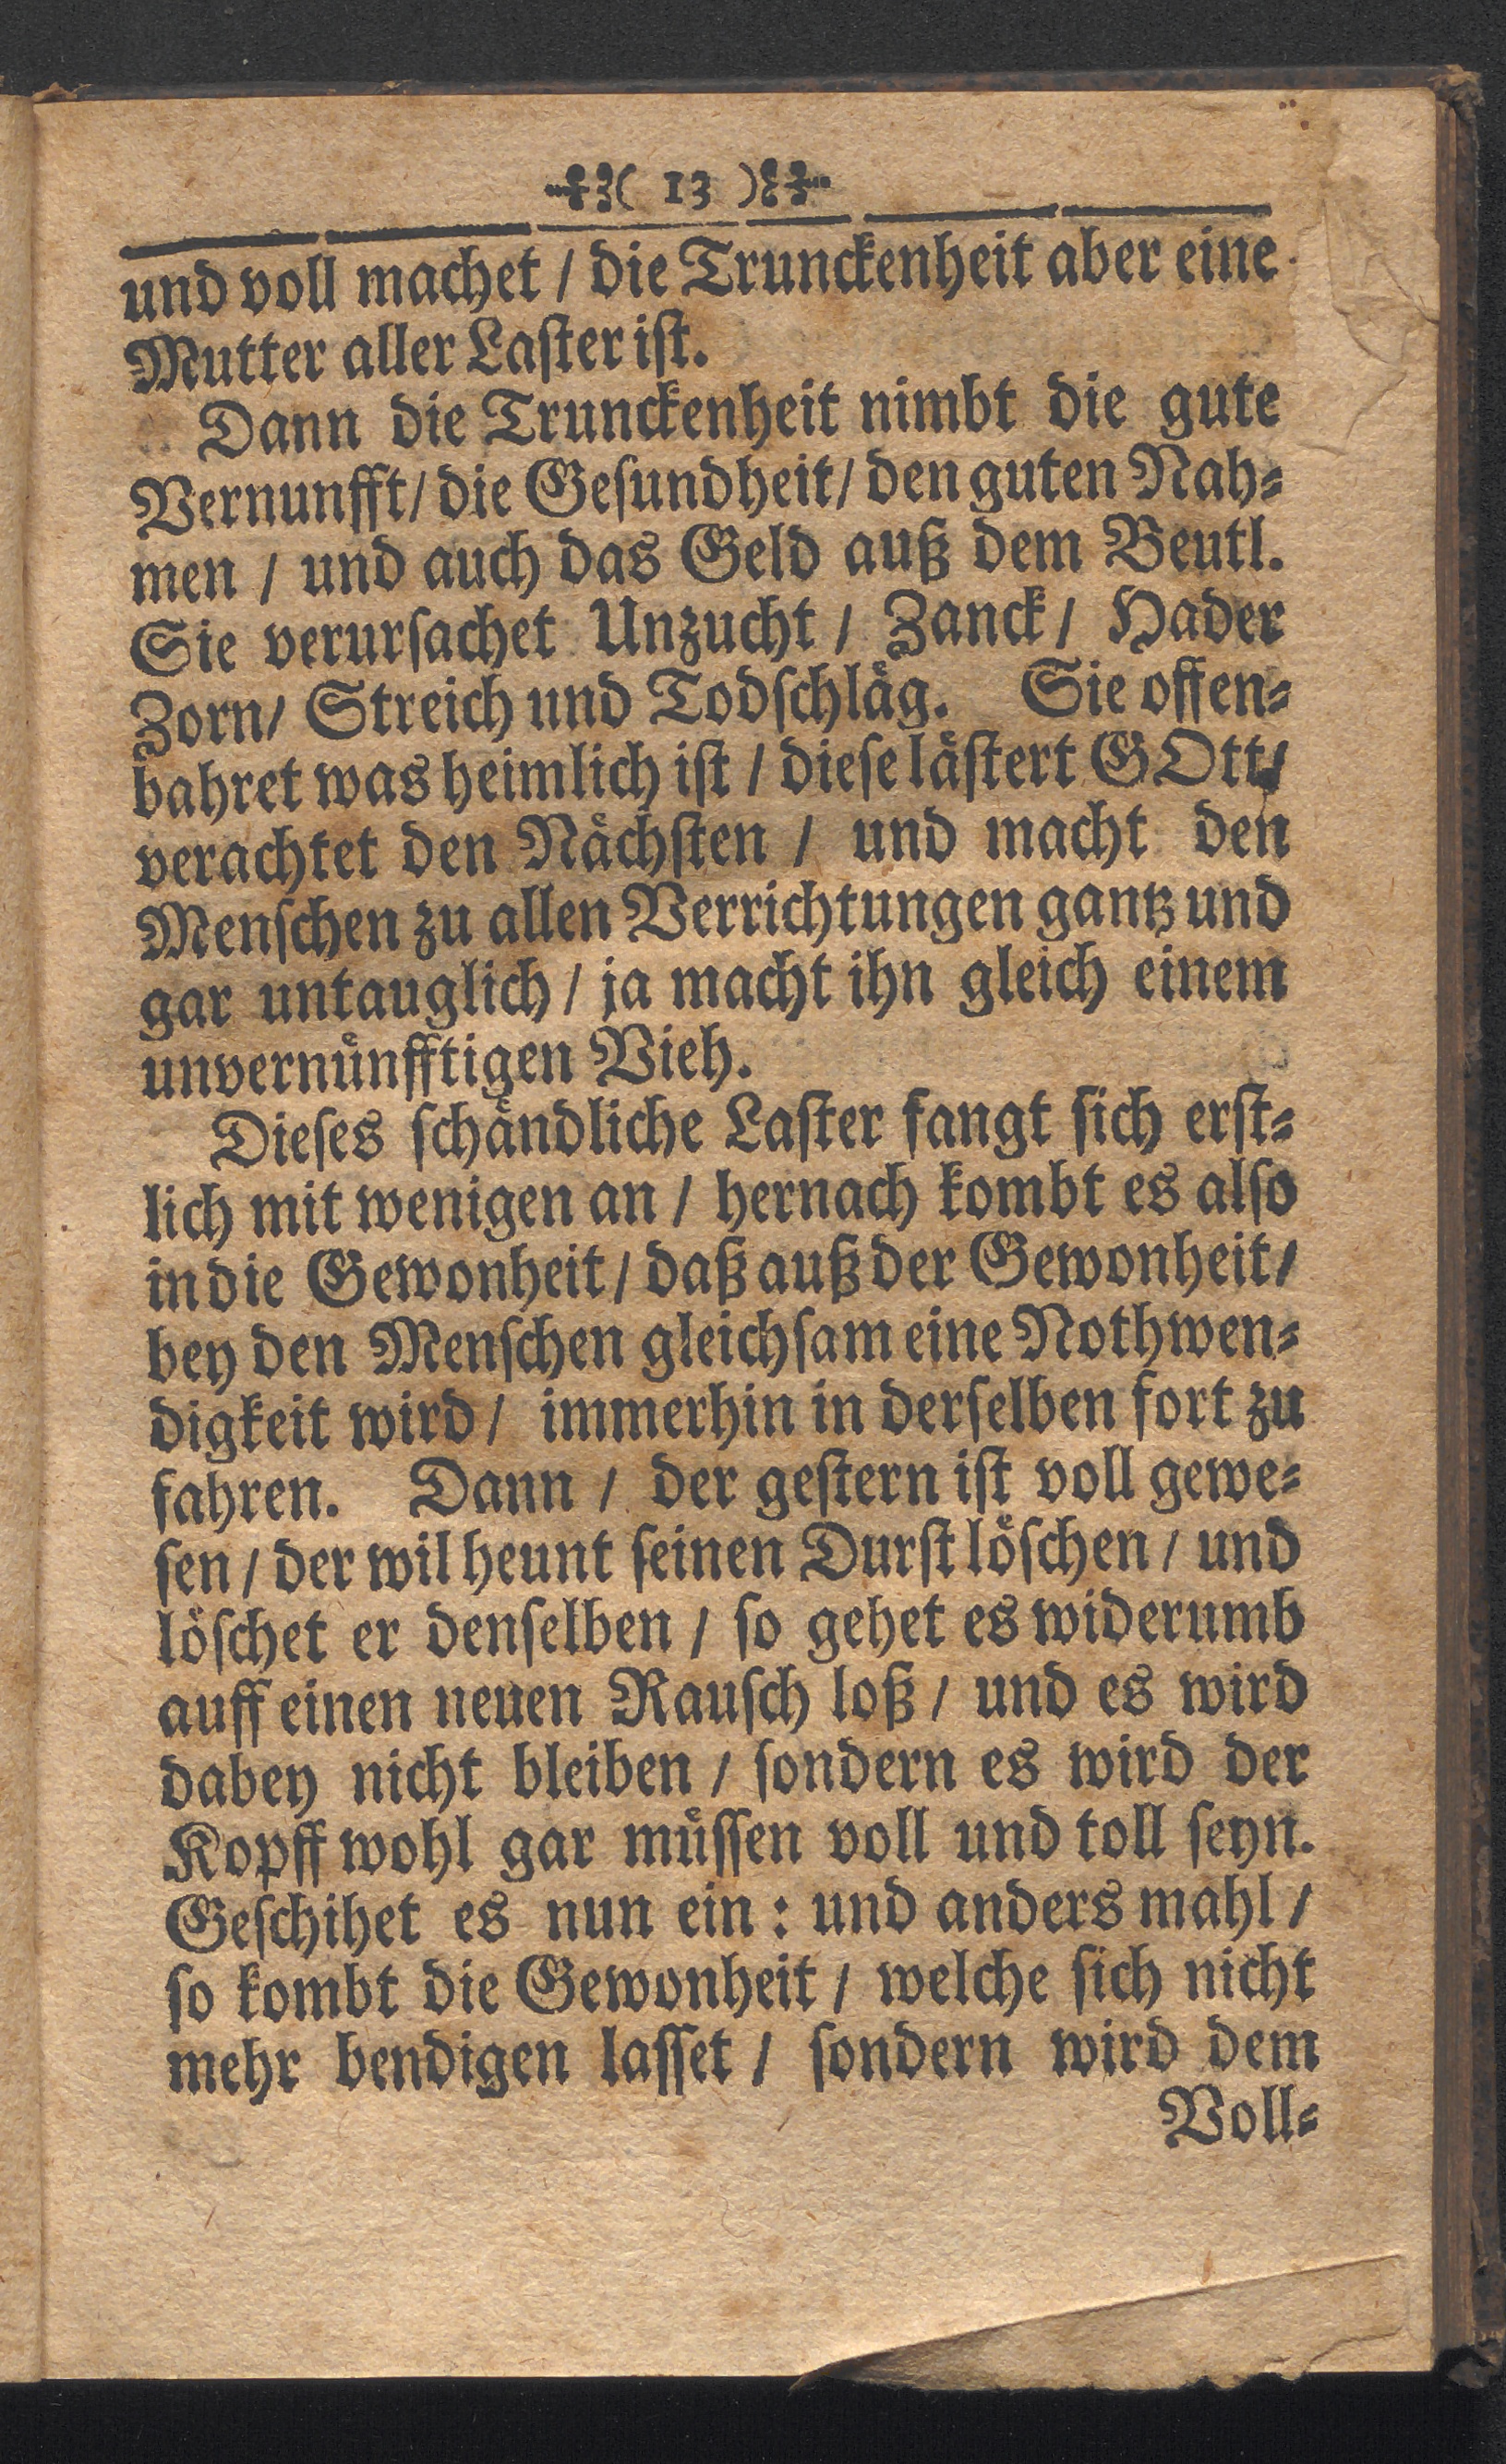 ( 13 )
und voll machet / die Trunckenheit aber eine
Mutter aller Laſter iſt.
Dann die Trunckenheit nimbt die gute
Vernunfft / die Geſundheit / den guten Nah⸗
men / und auch das Geld auß dem Beutl.
Sie verurſachet Unzucht / Zanck / Hader
Zorn / Streich und Todſchlåg. Sie offen⸗
bahret was heimlich iſt / dieſe låſtert GOtt /
verachtet den Nåchſten / und macht den
Menſchen zu allen Verrichtungen gantz und
gar untauglich / ja macht ihn gleich einem
unvernůnfftigen Vieh.
Dieſes ſchåndliche Laſter fangt ſich erſt⸗
lich mit wenigen an / hernach kombt es alſo
in die Gewonheit / daß auß der Gewonheit /
bey den Menſchen gleichſam eine Nothwen⸗
digkeit wird / immerhin in derſelben fort zu
fahren. Dann / der geſtern iſt voll gewe⸗
ſen / der wil heunt ſeinen Durſt löſchen / und
löſchet er denſelben / ſo gehet es widerumb
auff einen neuen Rauſch loß / und es wird
dabey nicht bleiben / ſondern es wird der
Kopff wohl gar můſſen voll und toll ſeyn.
Geſchihet es nun ein : und anders mahl /
ſo kombt die Gewonheit / welche ſich nicht
mehr bendigen laſſet / ſondern wird dem
Voll⸗